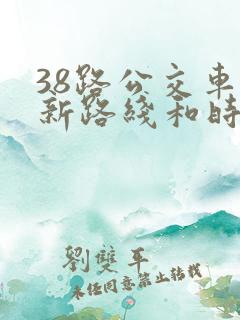 38路公交車
新路綫和時
劉雙平
未经同意禁止转载